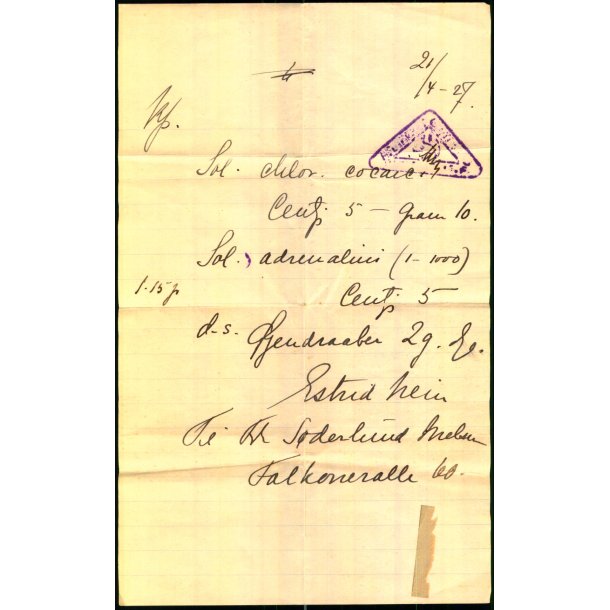 21/4-27.
Rp.
Sol. chlor. cocaic.
Centj 5 - gram 10.
Sol. adrenalini (1-1000)
1.15
Centj 5
d.s. Øjendraaber 2 g.
Estrid Hein
Til Søderlund
Falkoneralle 60.